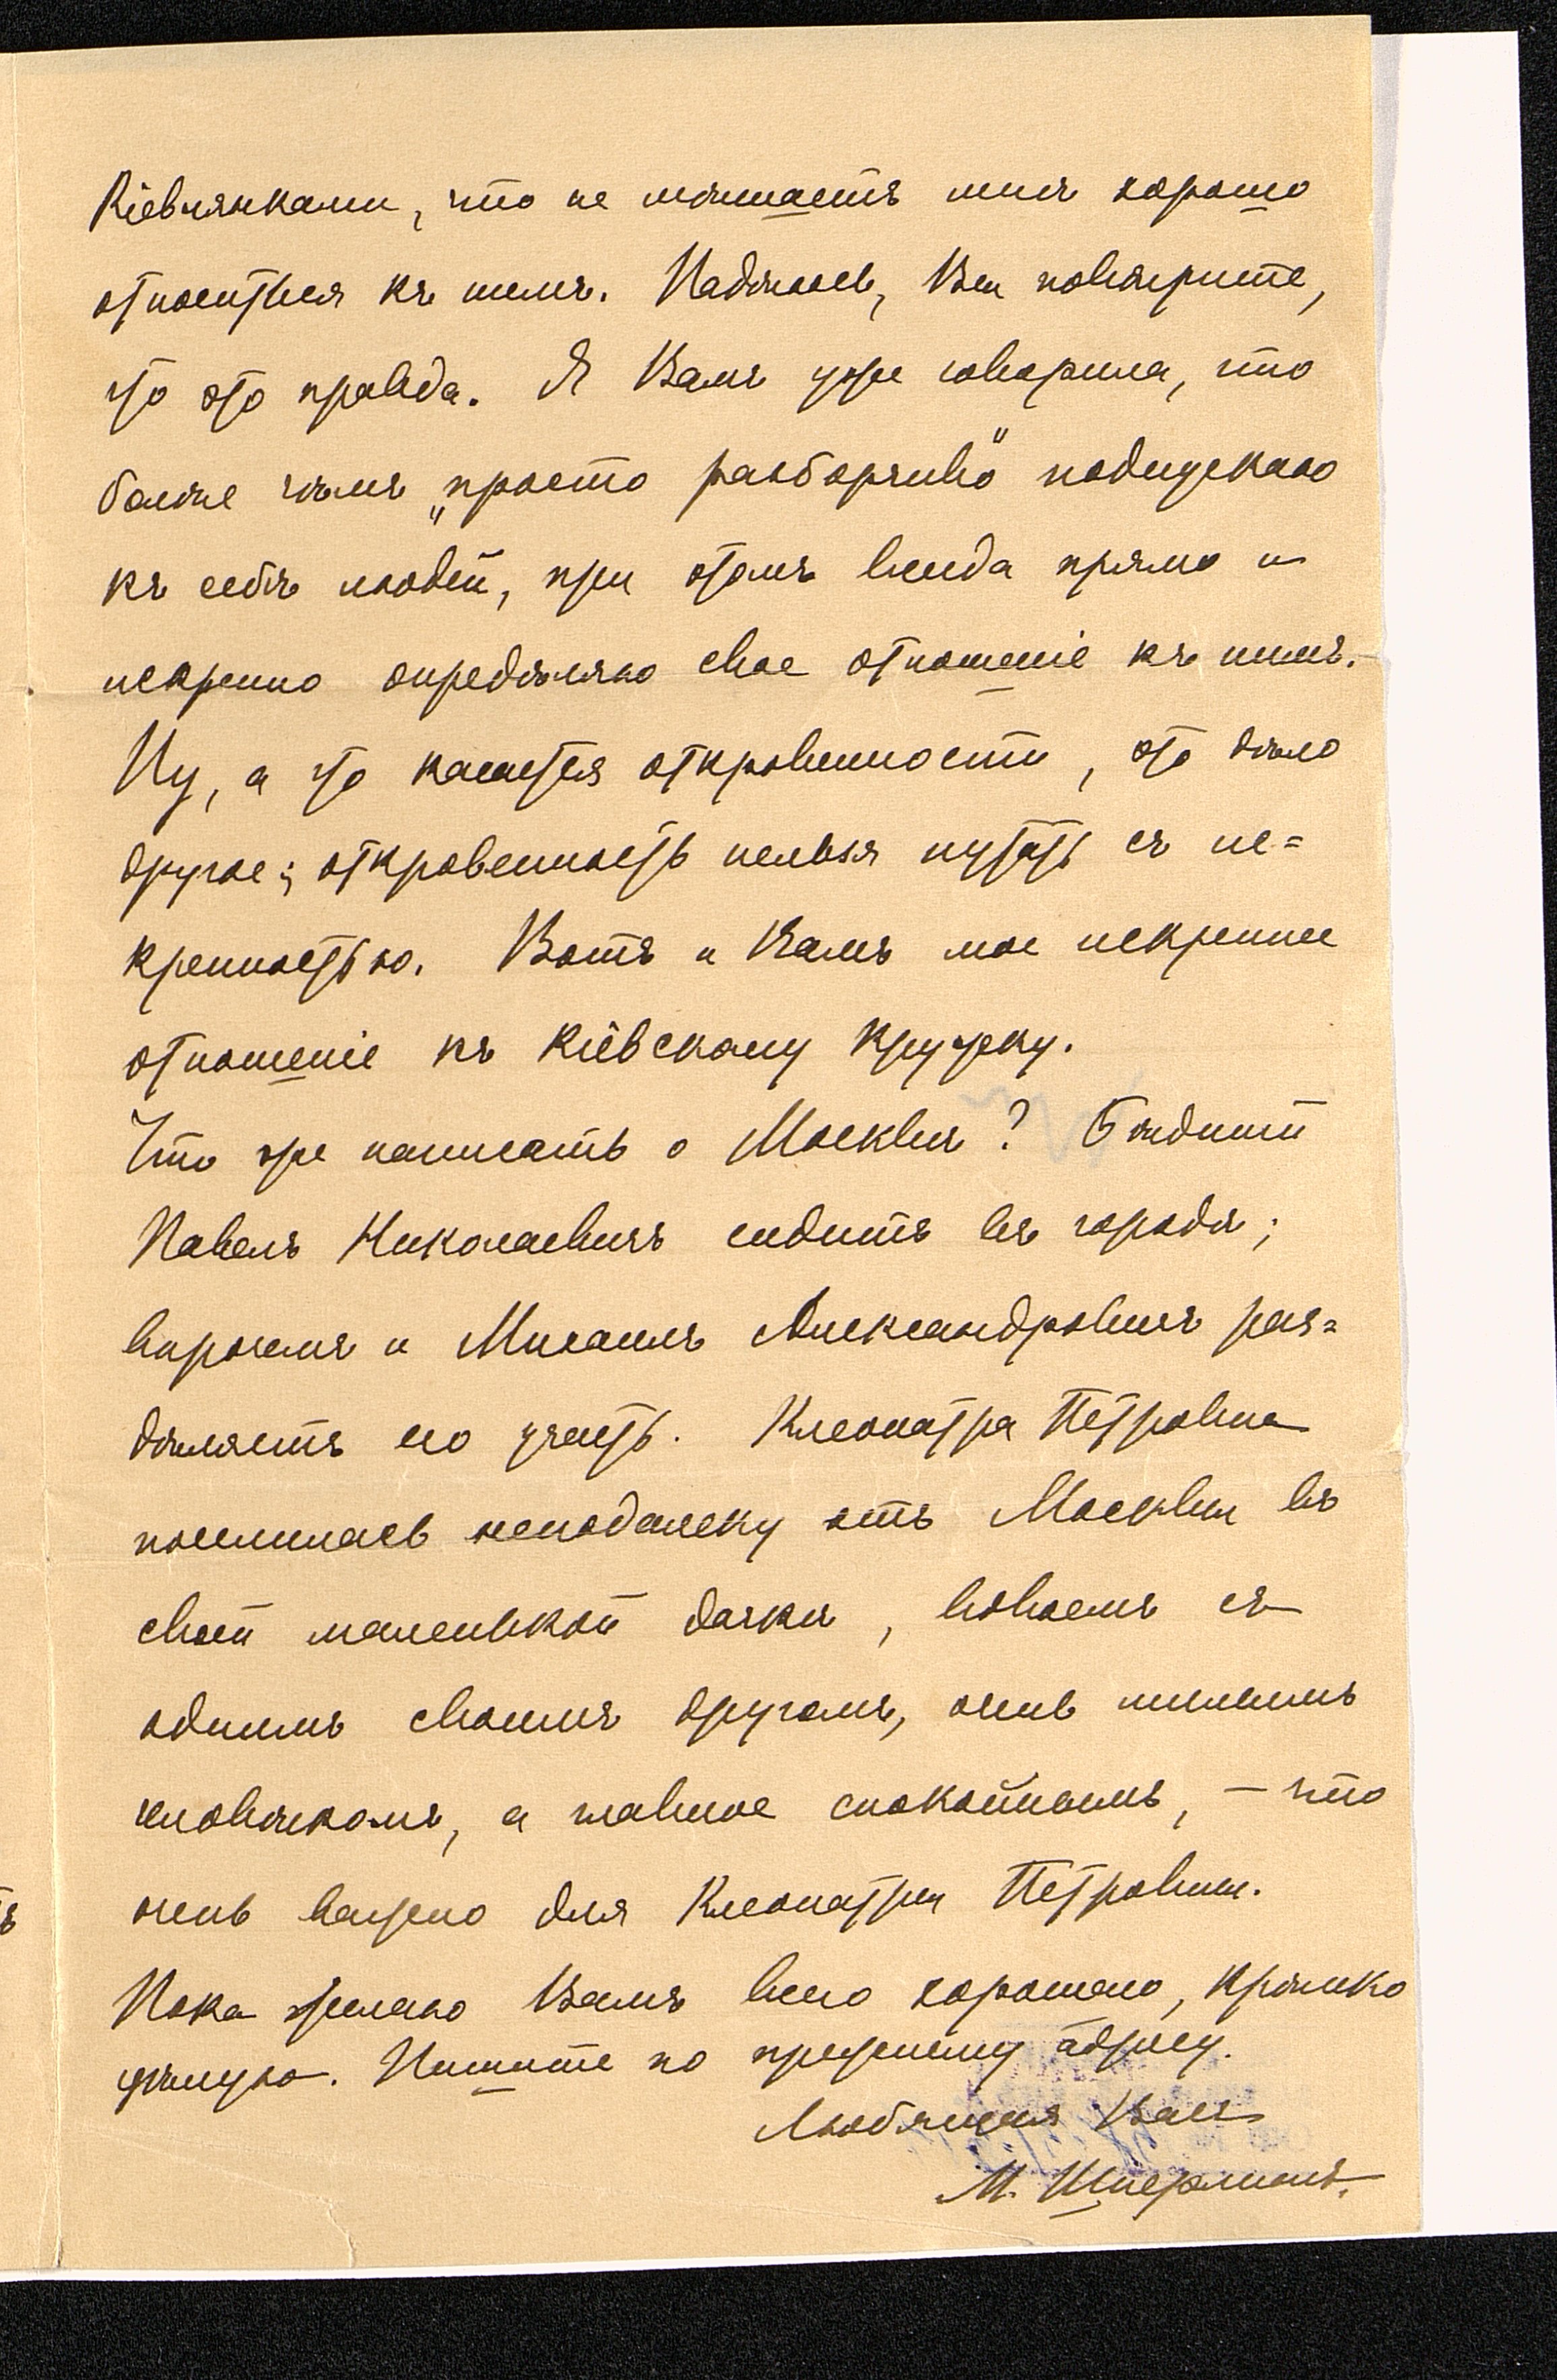 Кіевлянками, что не мѣшаетъ мнѣ хорошо
относиться къ нимъ. Надѣюсь, Вы повѣрите,
что это правда. Я Вамъ уже говорила, что
болѣе чѣмъ „просто разборчиво" подпускаю
къ себѣ людей, при этомъ всегда прямо и
искренно опредѣляю свое отношеніе къ нимъ.
Ну, а что касается откровенности, это дѣло
другое; откровенность нельзя путать съ ис=
кренностью. Вотъ и Вамъ мое искреннее
отношеніе къ Кіевскому кружку.
Что же написать о Москвѣ? Бѣдный
Павелъ Николаевичъ сидитъ въ городѣ;
впрочемъ и Михаилъ Александровичъ раз=
дѣляетъ его участь. Клеопатра Петровна
поселилась неподалеку отъ Москвы въ
своей маленькой дачкѣ, вдвоемъ съ
однимъ своимъ другомъ, очень милымъ
человѣкомъ, а главное спокойнымъ, – что
очень важно для Клеопатры Петровны.
Пока желаю Вамъ всего хорошаго, крѣпко
цѣлую. Пишите по прежнему адресу.
Любящая Васъ
М.